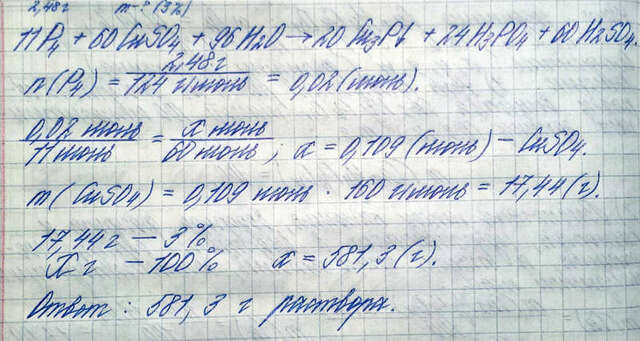 2,48 г m-? (3%)
11P₄ + 60CuSO₄ + 96H₂O → 20Cu₃P↓ + 24H₃PO₄ + 60H₂SO₄
n(P₄) = 2,48 г / 124 г/моль = 0,02 (моль).
0,02 моль / 11 моль = x моль / 60 моль ; x = 0,109 (моль) – CuSO₄.
m(CuSO₄) = 0,109 моль · 160 г/моль = 17,44 (г).
17,44 г — 3%
X г — 100% x = 581,3 (г).
Ответ : 581,3 г раствора.